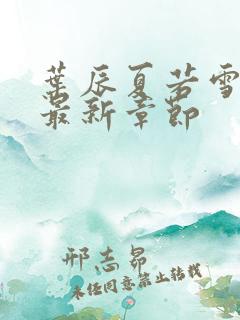 葉辰夏若雪
最新章節
邢志昂
未经同意禁止转载